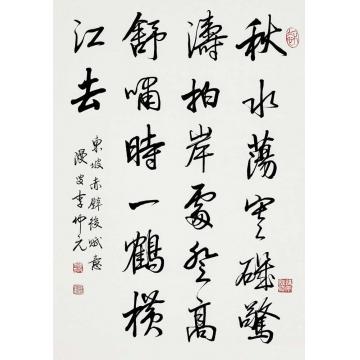 秋水蕩寒磯驚
濤拍岸處登高
舒嘯時一鶴橫
江去
東坡赤壁後賦意
漫叟李仲元